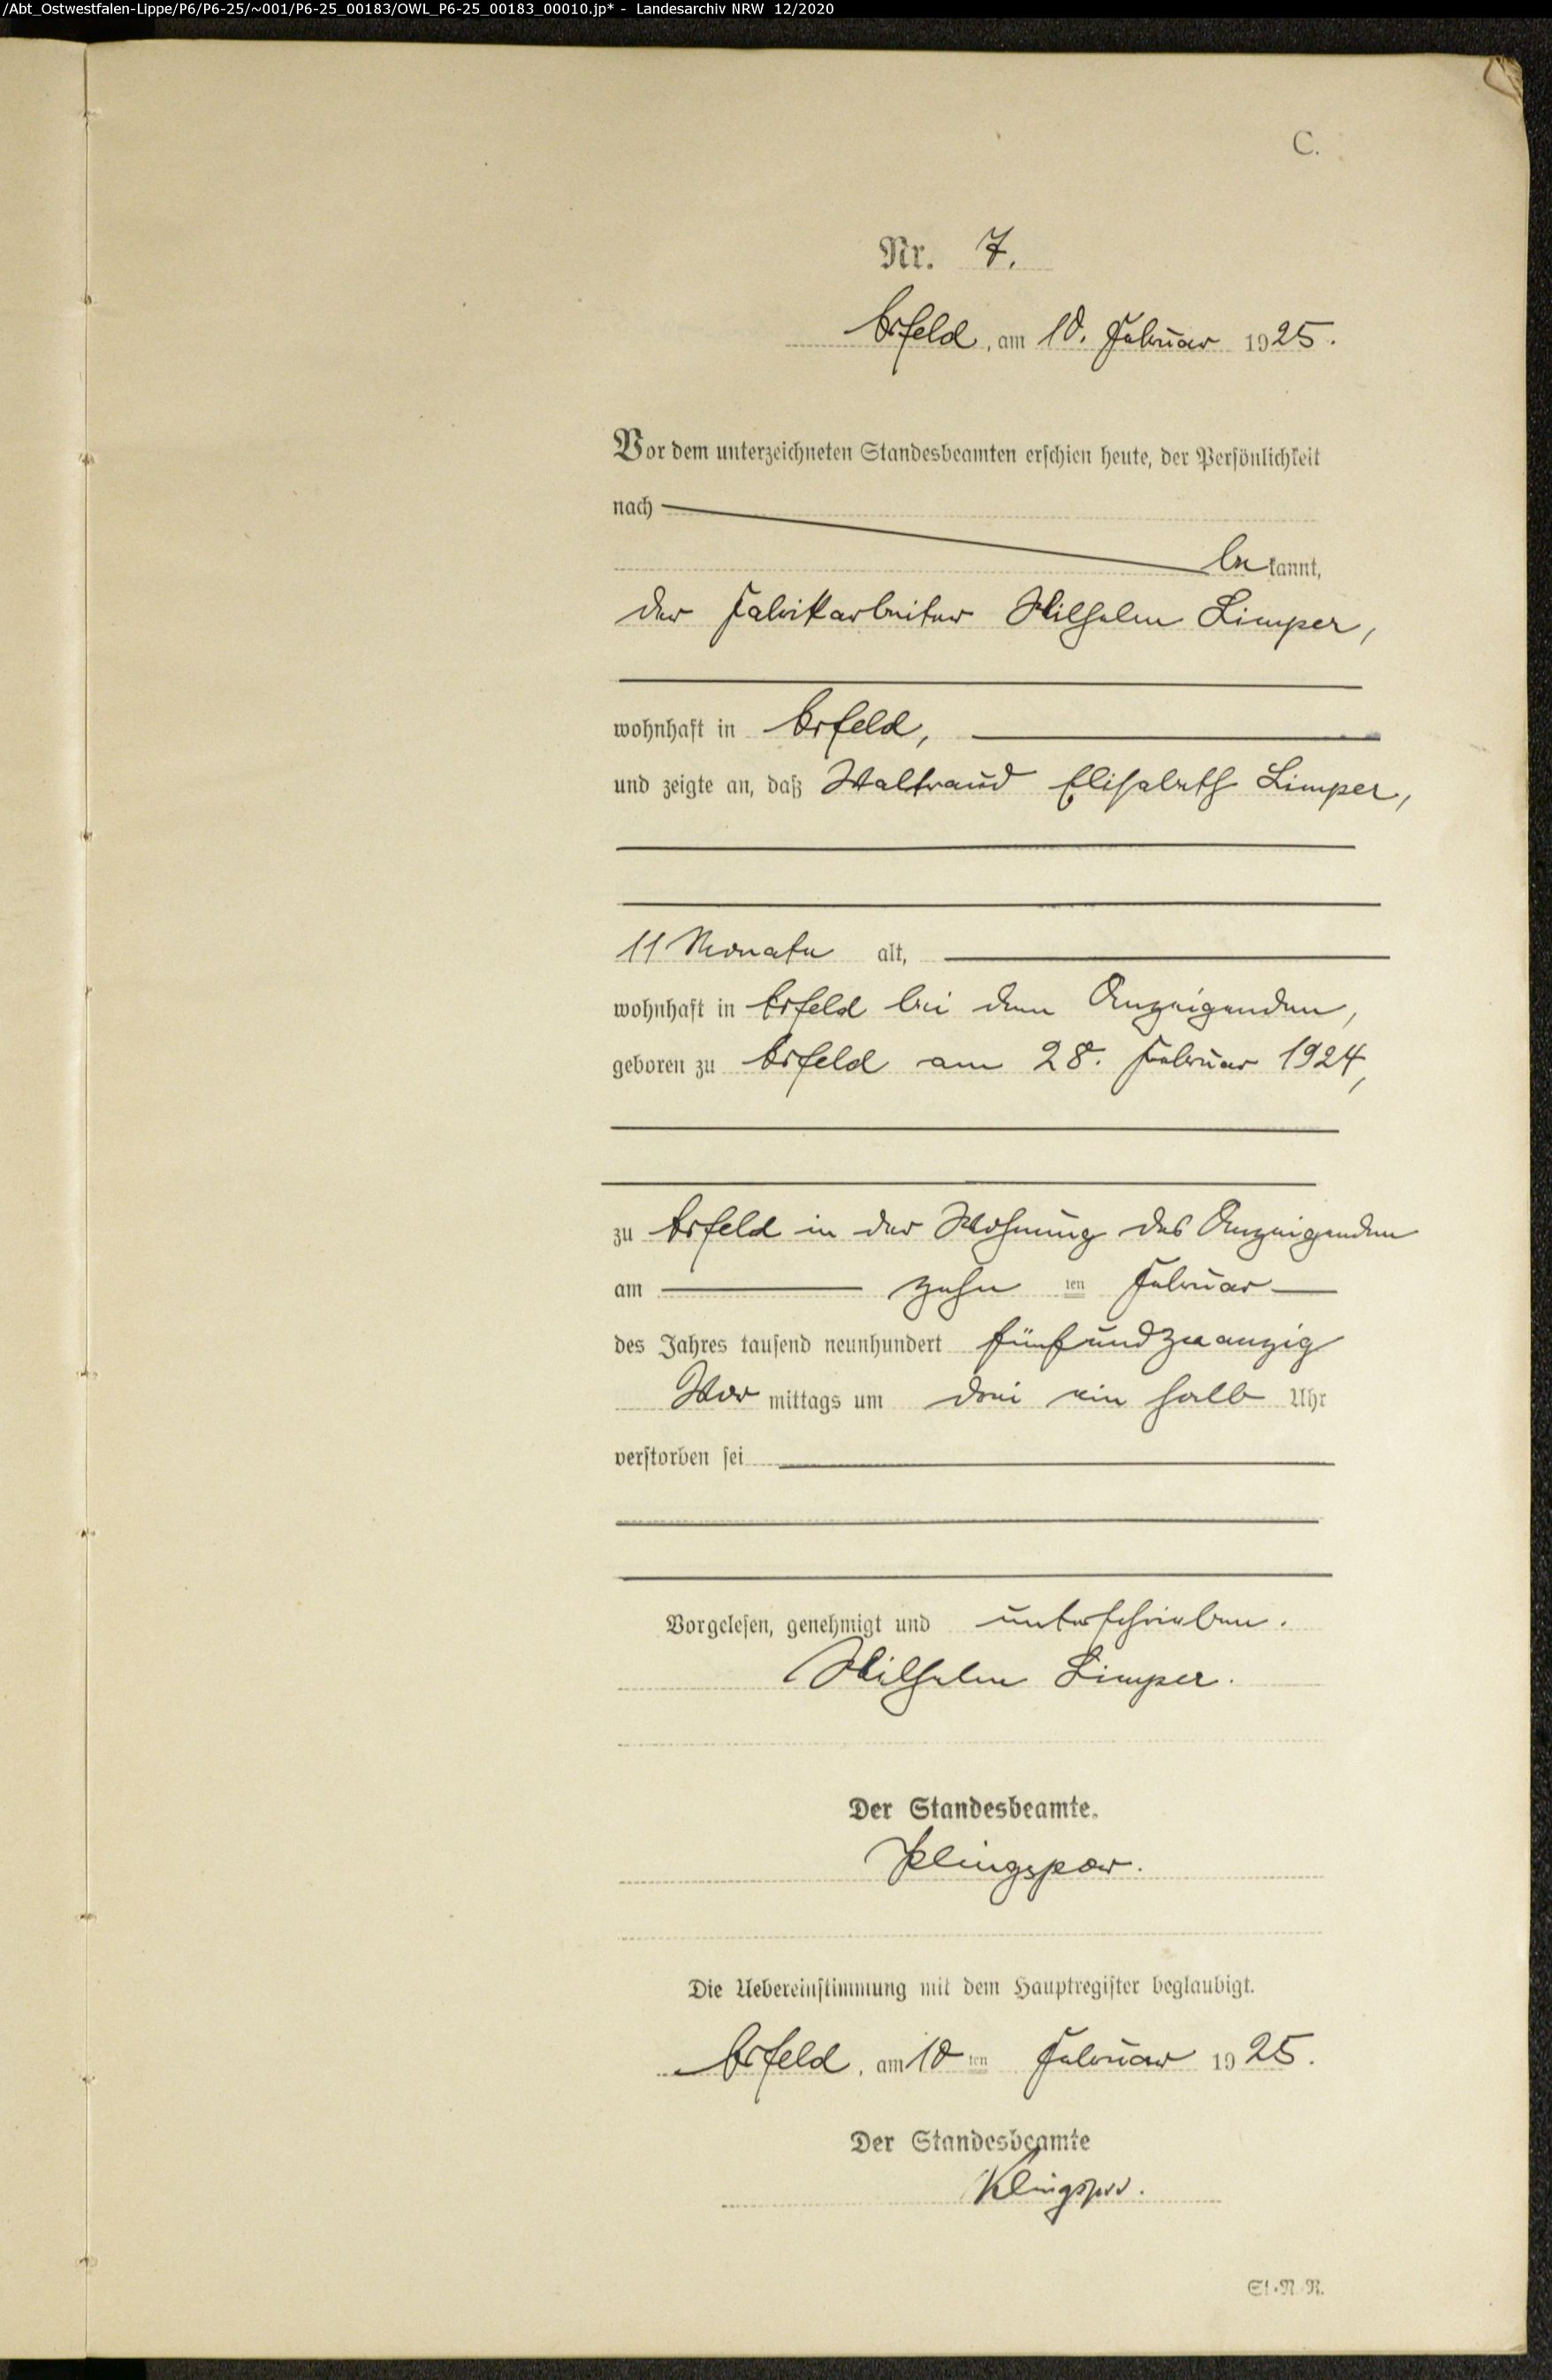 /Abt_Ostwestfalen-Lippe/P6/P6-25/~001/P6-25_00183/OWL_P6-25_00183_00010.jp* - Landesarchiv NRW 12/2020
C.
Nr. 7.
am 10. Februar 1925.
Vor dem unterzeichneten Standesbeamten erschien heute, der Persönlichkeit
nach
bekannt,
der Fabrikarbeiter Wilhelm Limper,
wohnhaft in
und zeigte an, daß Waltraud Elisabeth Limper,
11 Monate alt,
wohnhaft in bei dem Anzeigenden,
geboren zu am 28. Februar 1924,
zu in der Wohnung des Anzeigenden
am zehn ten Februar
des Jahres tausend neunhundert fünfundzwanzig
Vor mittags um drei ein halb Uhr
verstorben sei
Vorgelesen, genehmigt und unterschrieben.
Wilhelm Limper.
Der Standesbeamte.
Klingspor.
Die Uebereinstimmung mit dem Hauptregister beglaubigt.
am 10 ten Februar 1925.
Der Standesbeamte
Klingspor.